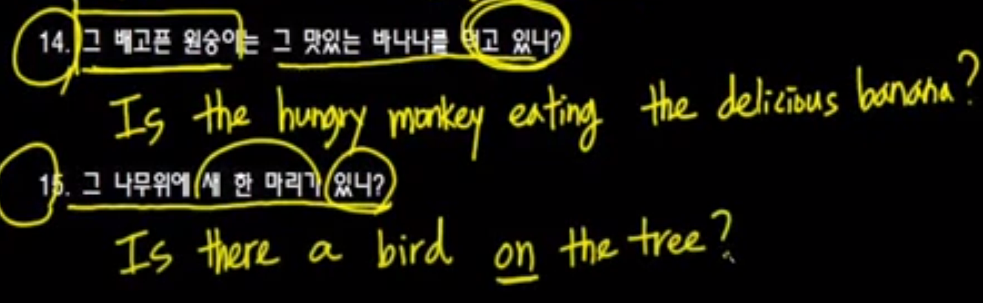 14. 그 배고픈 원숭이는 그 맛있는 바나나를 먹고 있니?
Is the hungry monkey eating the delicious banana?
15. 그 나무위에 새 한 마리가 있니?
Is there a bird on the tree?